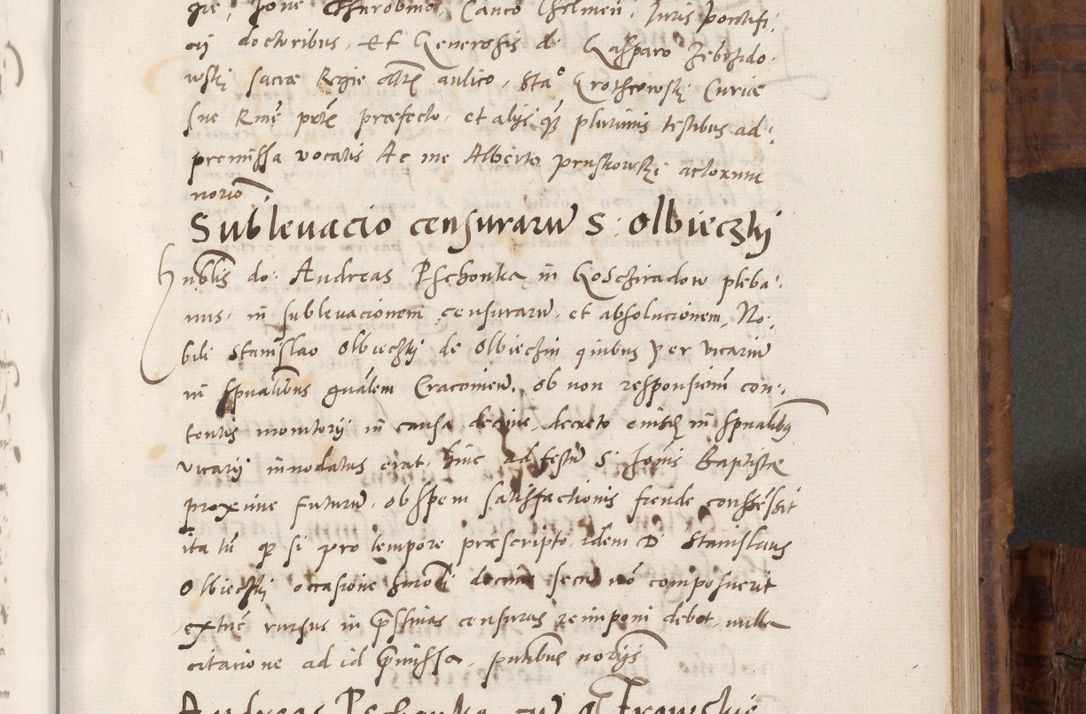 gie, Jone Churobino, Canco Chelmen, Juris pontifi:
cij doctoribus, et Generosis d. Gasparo Zebrzido:
wskj sacræ Regie Mtis aulico, Stao Crothowskj Curiæ
sue Rme prte præfecto, et alijs q3 plurimis testibus ad:
premissa vocatis Ac me Alberto pruskowskj actorum
norio
Sublevacio censuraru S: Olbieczkj
Hublis do: Andreas Pschonka in Gosczradow pleba:
nus, in sublevacionem censuraru, et absolucionem, No:
bili Stanislao Olbieczkj de Olbieczin quibus per vicariu
in spualibus gnalem Cracovien, ob non responsionem con:
tentis monitorij in causa decime, decreto eiusde in spualibus
vicarij innodatus erat, hinc ad festu S: Joanis Baptistæ
proxime futuru, ob spem satisfactionis fiende consessit
ita tn q si pro tempore præscripto, idem D Stanislaus
Olbieczkj occasione hmoi decime secu no composuerit
extuc rursus in pstinas censuras reimponi debet, nulla
citacione ad id pmissa, pntibus norijs
Andreas Pschonka cu Trawskie